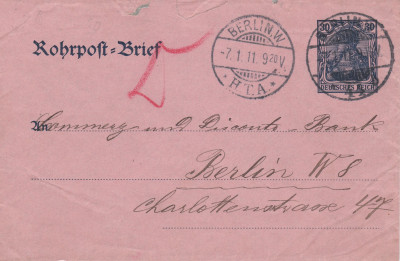 Rohrpost-Brief
BERLIN.W.
-7.1.11. 9 20 V.
* H.T.A. *
BERLIN.W
30 30
DEUTSCHES REICH
An Commerz- und Disconto-Bank
Berlin W 8
Charlottenstrasse 47